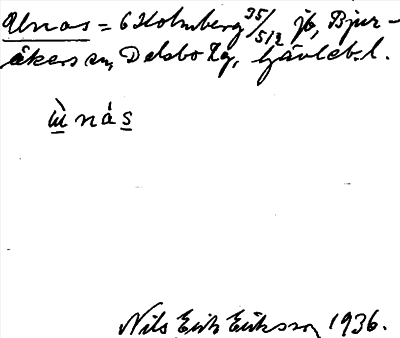 Unås = 6 Holmberg 35/512 jb, Bjur-
åkers sn, Delsbo tg, Gävleb. l.
ùnás
Nils Erik Eriksson 1936.